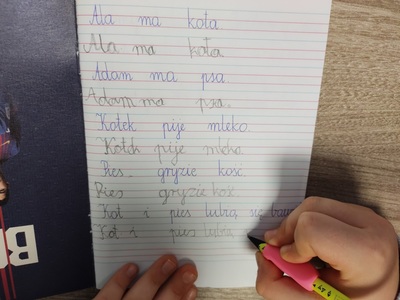 Ala ma kota
Ala ma kota
Adam ma psa
Adam ma psa.
Kotek pije mleko.
Kotek pije mleko
Pies gryzie kość.
Pies gryzie kość
Kot i pies lubią się
Kot i pies lubią
B